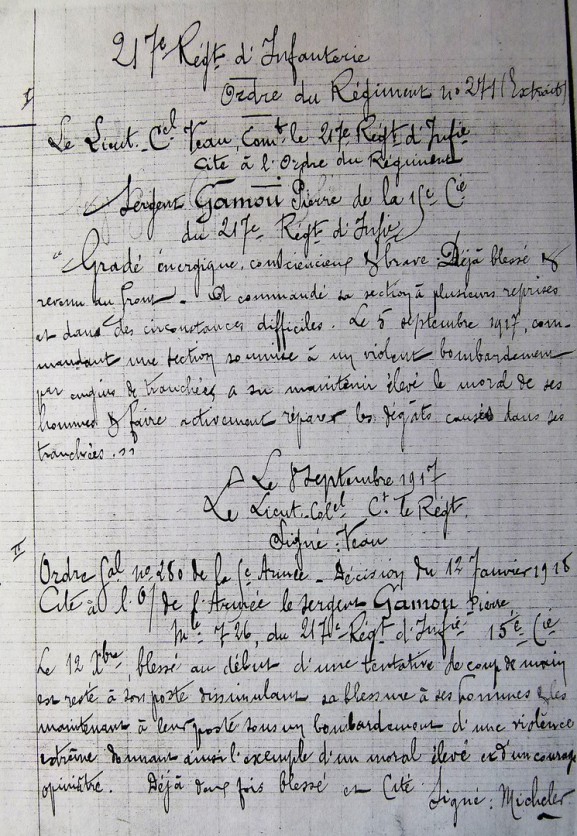 217e Régt d'Infanterie
I
Ordre du Régiment no 271 (Extrait)
Le Lieut. Cel Veau, Comt le 217e Régt d'Infie
Cite à l'Ordre du Régiment
Sergent Gamou Pierre de la 15e Cie
du 217e Régt d'Infie
"Gradé énergique, consciencieux & brave. Déjà blessé &
revenu au front. A commandé sa section à plusieurs reprises
et dans des circonstances difficiles. Le 5 septembre 1917, com-
mandant une section soumise à un violent bombardement
par engins de tranchées, a su maintenir élevé le moral de ses
hommes & faire activement réparer les dégâts causés dans ses
tranchées."
Le 8 Septembre 1917
Le Lieut-Colel Ct le Régt.
Signé: Veau
II
Ordre Gal no 280 de la Armée - Décision du 12 Janvier 1918
Cité à l'O/ de l'Armée le Sergent Gamou Pierre,
Mle 726, du 217e Régt d'Infie 15e Cie
Le 12 Xbre, blessé au début d'une tentative de coup de main
est resté à son poste dissimulant sa blessure à ses hommes & les
maintenant à leur poste sous un bombardement d'une violence
extrême donnant ainsi l'exemple d'un moral élevé et d'un courage
opiniâtre. Déjà deux fois blessé et Cité.
Signé: Micheler